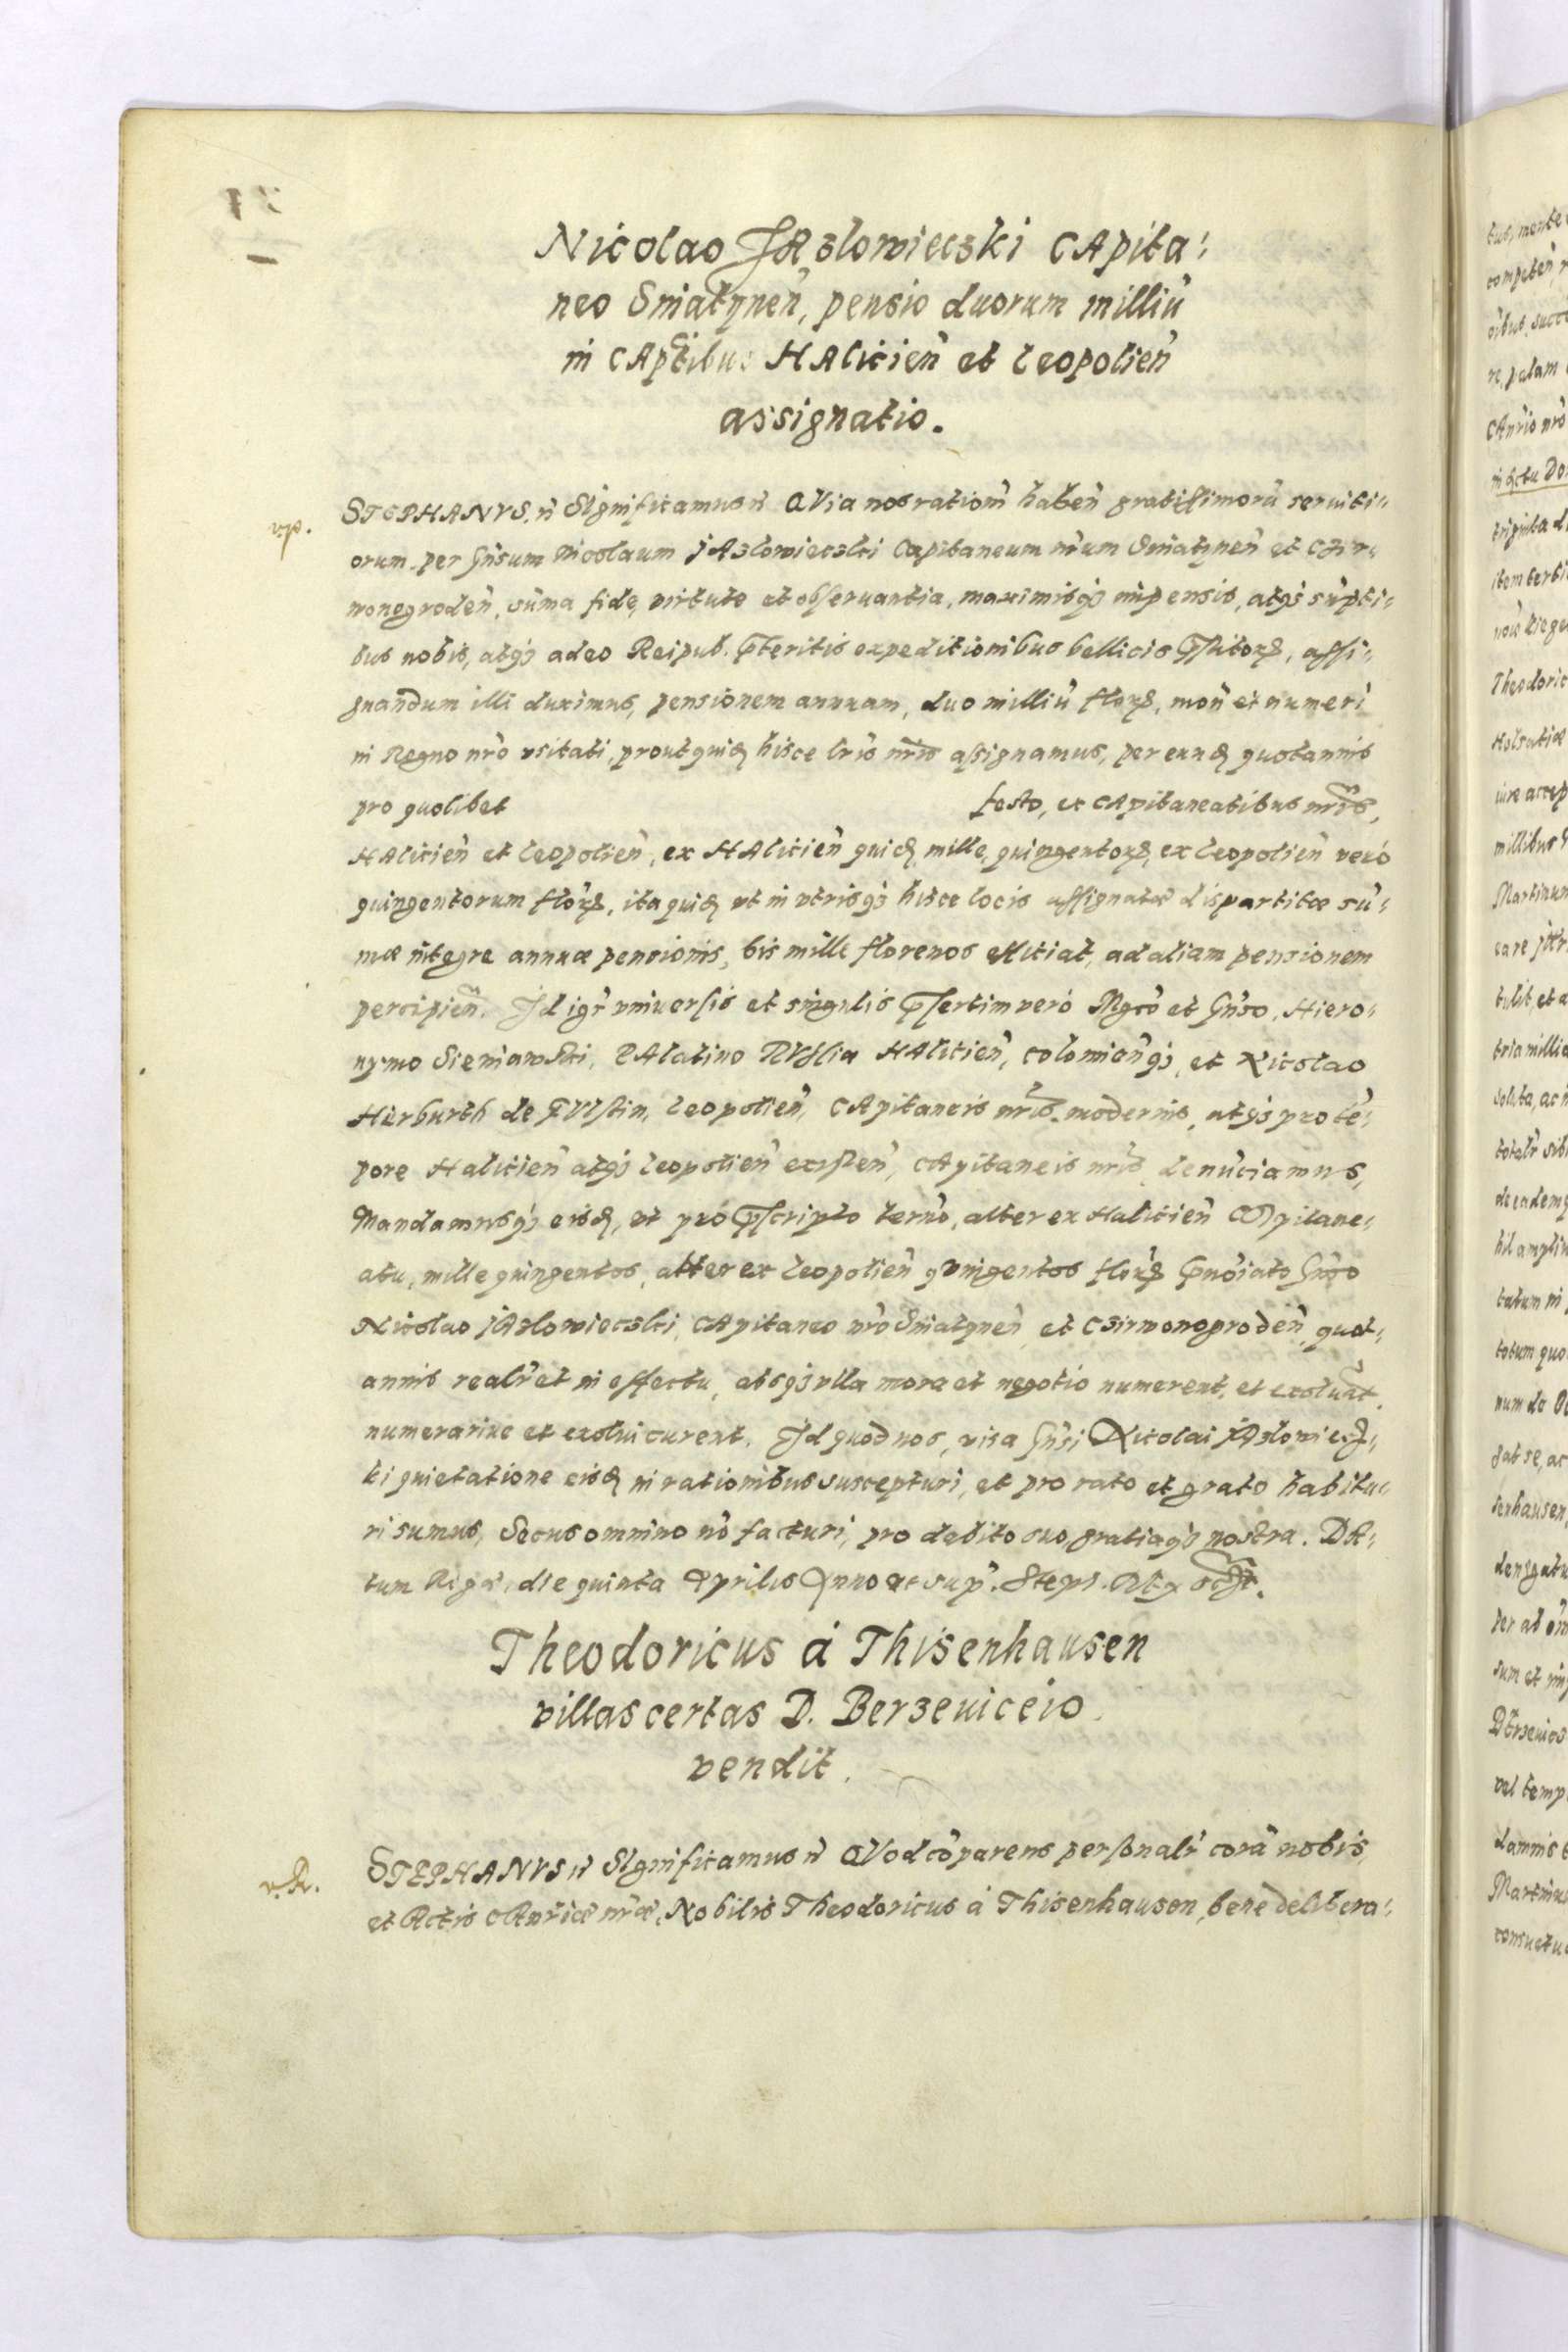 Nicolao JAzlowieczki CApita-
neo Sniatynen̄, pensio duorum milliū
in CAptibus HAlicien̄ et Leopolien̄
assignatio.
v.p.
STEPHANVS. n̄ SIgnificamus n̄ QVia nos ration̄ haben̄ gratissimorū seruiti-
orum per Gn̄sum Nicolaum jAzlowieczki Capitaneum nr̄um Sniatynen̄ et Czir-
wonegroden̄, sum̄a fide, virtute et obseruantia, maximisq3 impensis, atq3 sūpti-
bus nobis, atq3 adeo Reipub. p̄teritis expeditionibus bellicis p̄stitorꝝ, assi-
gnandum illi duximus, pensionem annuam, duo milliū florꝝ, mon̄ et numeri
in Regno nr̄o vsitati, prout quidē hisce lrīs nr̄is assignamus, per eundē quotannis
pro quolibet festo, ex CApitaneatibus nr̄is,
HAlicien̄ et Leopolien̄, ex HAlicien̄ quidē mille, quingentorꝝ, ex Leopolien̄ veró
quingentorum florꝝ, ita quidē vt in vtrisq3 hisce locis assignatæ dispartitæ sū-
mæ integre annuæ pensionis, bis mille florenos efficiat, ad aliam pensionem
percipien̄. Id igr̄ vniuersis et singulis p̄sertim veró Mgcō et Gn̄so, Hiero-
nymo Sieniawski, PAlatino RVssiæ HAlicien̄, Colomien̄q3, et Nicolao
Herburth de FVlstin, Leopolien̄, CApitaneis nr̄is modernis, atq3 pro tē-
pore Halicien̄ atq3 Leopolien̄ existen̄, CApitaneis nr̄is denūciamus,
Mandamusq3 eisdē, vt pró p̄scripto term̄o, alter ex Halicien̄ CApitane-
atu, mille quingentos, alter ex Leopolien̄ qVingentos florꝝ p̄nōiato Gn̄so
Nicolao jAzlowieczki, CApitaneo nr̄o Sniatynen̄ et Czirwonogroden̄, quot-
annis realr̄ et in effectu, absq3 vlla mora et negotio numerent, et exoluāt,
numerariue et exolui curent. Id quod nos, visa Gn̄si Nicolai jAzlowiecz-
ki quietatione eisdē in rationibus suscepturi, et pro rato et grato habitu-
ri sumus, Secus omnino nō facturi, pro debito suo, gratiaq3 nostra. DA-
tum Rigæ, die quinta Aprilis Anno vt sup̄. Steph. Rex sc̄t.
Theodoricus á Thisenhausen
villas certas D. Berzeuiceio
vendit.
v.R.
STEPHANVS n̄ SIgnificamus n̄ QVod cōparens personalr̄ corā nobis,
et Actis CAnr̄iæ nr̄æ, Nobilis Theodoricus á Thisenhausen, bene delibera-